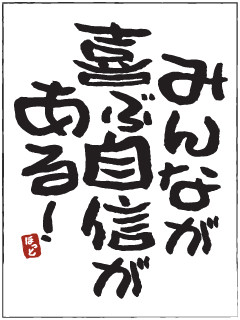 みんなが
喜ぶ自信が
ある!
ほっと